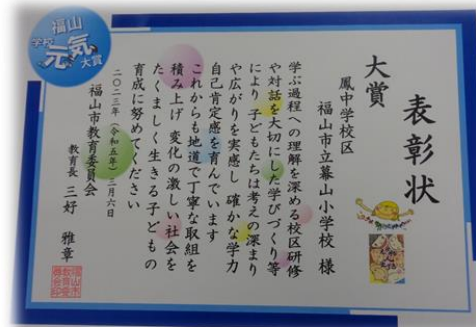 福山
学校
元気
大賞
表彰状
大賞
鳳中学校区
福山市立幕山小学校 様
学ぶ過程への理解を深める校区研修
や対話を大切にした学びづくり等
により 子どもたちは考えの深まり
や広がりを実感し 確かな学力
自己肯定感を育んでいます
これからも地道で丁寧な取組を
積み上げ 変化の激しい社会を
たくましく生きる子どもの
育成に努めてください
二〇二三年（令和五年）三月六日
福山市教育委員会
教育長 三好 雅章
福山市
教育委
員会印